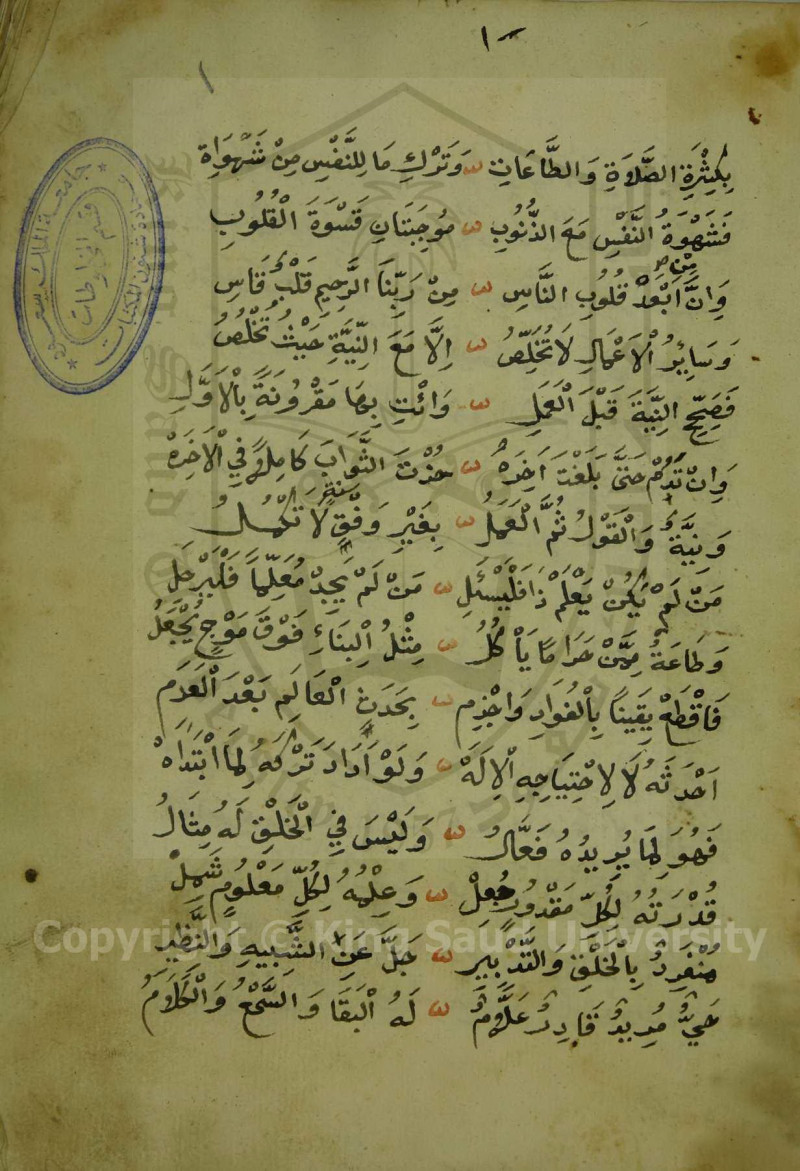 بِكَثْرَةِ الصَّلَاةِ وَالطَّاعَاتِ وَتَرْكِ مَا لِلنَّفْسِ مِنْ شَهْوَاةِ
فَشَهْوَةُ النَّفْسِ مَعَ الذُّنُوبِ مُوجِبَتَانِ قَسْوَةَ الْقُلُوبِ
وَاِنَّ اَبْعَدْ قُلُوبِ النَّاسِ مِنْ رَبِّنَا الرَّحِيمِ قَلْبٌ قَاسِ
وَسَائِرُ الْاَعْمَالِ لَا تُخَلِّصُ اِلَّا مَعَ النِّيَّةِ حَيْثُ تَخْلُصُ
فَصَحِّحِ النِّيَّةَ قَبْلَ الْعَمَلِ وَائْتِ بِهَا مَقْرُونَةً بِالْاَوَّلِ
وَاِنْ تَدُمْ حَتَّى بَلَغْتَ آخِرَهُ حُزْتَ الثَّوَابَ كَامِلًا فِي الْآخِرَهْ
وَنِيَّةٌ وَالْقَوْلُ ثُمَّ الْعَمَلُ بِغَيْرِ وَفْقِ سُنَّةٍ لَا تَكْمُلُ
مَنْ لَمْ يَكُنْ يَعْلَمْ ذَا فَلْيَسْئَلِ مَنْ لَمْ يَجِدْ مُعَلِّمًا فَلْيَرْحَلِ
وَطَاعَةٌ مِمَّنْ حَرَامًا يَأْكُلُ مِثْلُ الْبِنَاءِ فَوْقَ مَوْجٍ يُجْعَلُ
فَاقْطَعْ يَقِينًا بِالْفُوَادِ وَاجْزِمِ بِحَدَثِ الْعَالَمِ بَعْدَ الْعَدَمِ
اَحْدَثَهُ لَا لِاحْتِيَاجِهِ الْاِلَهْ وَلَوْ اَرَادَ تَرْكَهُ لَمَا ابْتَدَاهْ
فَهُوَ لِمَا يُرِيدُهُ فَعَّالُ وَلَيْسَ فِي الْخَلْقِ لَهُ مِثَالُ
قُدْرَتُهُ لِكُلِّ مَقْدُورٍ جُعِلْ وَعِلْمُهُ لِكُلِّ مَعْلُومٍ شَمِلْ
مُنْفَرِدٌ بِالْخَلْقِ وَالتَّدْبِيرِ جَلَّ عَنِ الشَّبِيهِ وَالنَّظِيرِ
حَيٌّ مُرِيدٌ قَادِرٌ عَلَّامُ لَهُ الْبَقَا وَالسَّمْعُ وَالْكَلَامُ
Copyright © King Saud University